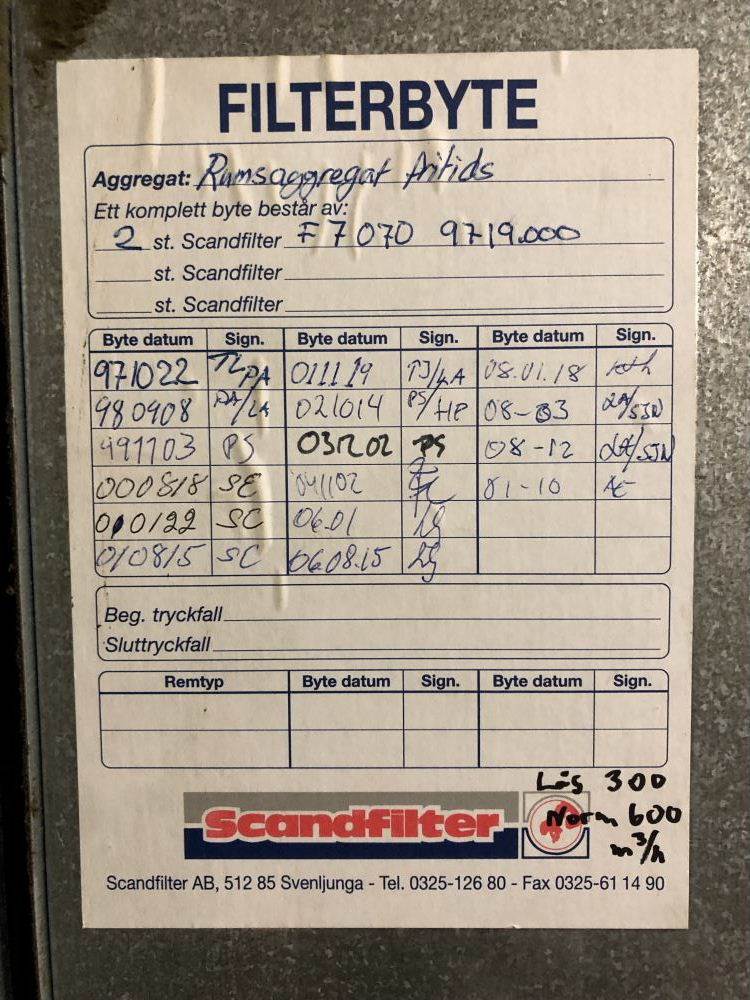 FILTERBYTE
Aggregat: Rumsaggregat fritids
Ett komplett byte består av:
2 st. Scandfilter F7 070 9719.000
st. Scandfilter
st. Scandfilter
Byte datum Sign. Byte datum Sign. Byte datum Sign.
971022 TL/PA 011119 PJ/LA 08.01.18
980908 PA/LA 021014 PS/HP 08-03 LA/SJN
991103 PS 031202 PS 08-12 LA/SJN
000818 SE 041102 01-10
010122 SC 06.01 LG
010815 SC 06.08.15 LG
Beg. tryckfall
Sluttryckfall
Remtyp Byte datum Sign. Byte datum Sign.
Lås 300
Norm 600
m³/h
Scandfilter
Scandfilter AB, 512 85 Svenljunga - Tel. 0325-126 80 - Fax 0325-61 14 90